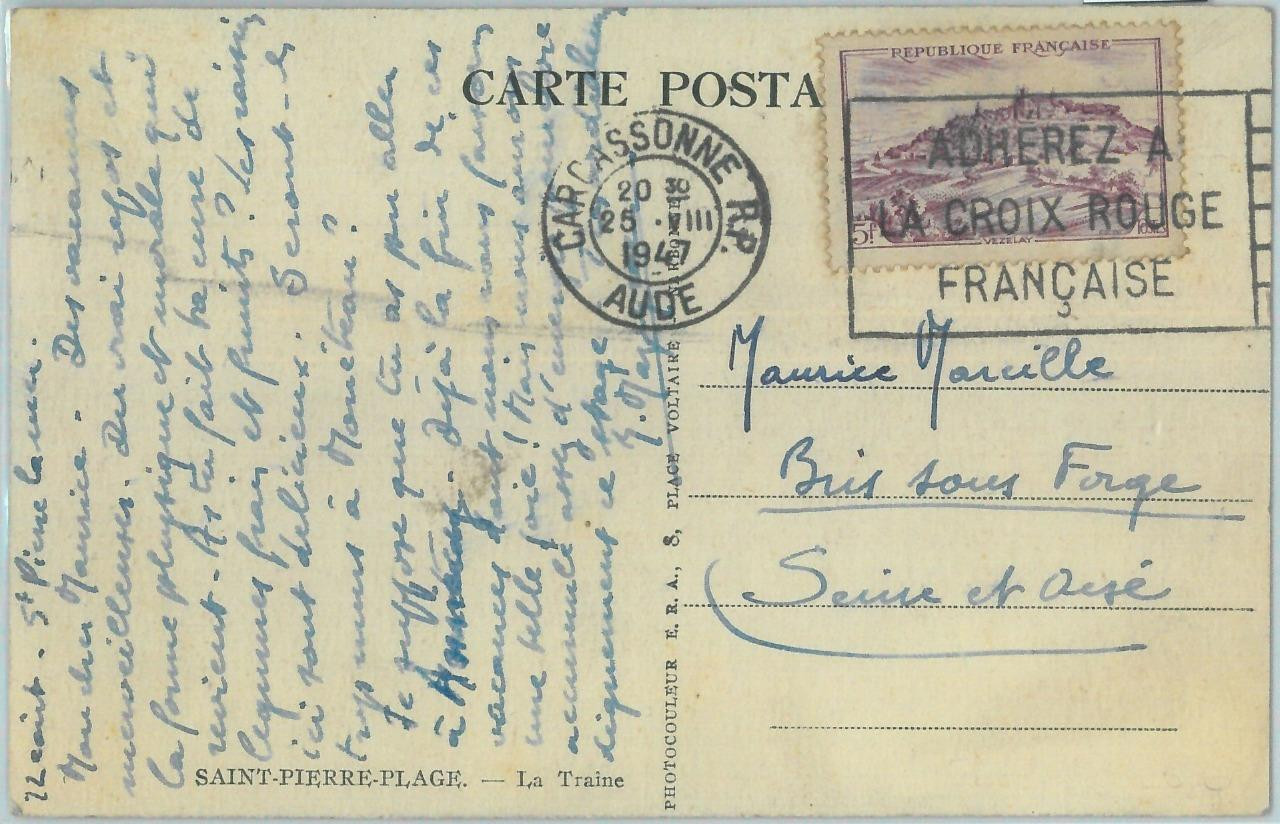 CARTE POSTA
REPUBLIQUE FRANÇAISE
5f
VEZELAY
POSTES
CARCASSONNE R.P.
20 30
25 · VIII
1947
AUDE
ADHEREZ A
LA CROIX ROUGE
FRANÇAISE
Maurice Marcille
Bris sous Forge
Seine et Oise
22 août - St Pierre la mer.
Mon cher Maurice. Des vacances
merveilleuses. Du vrai repos et
la forme physique et morale qui
revient - As tu fait ta cure de
légumes frais et fruits ? les raisins
ici sont délicieux. Seront-ils
trop murs à Monéteau ?
Je suppose que tu as pu aller
à Annecy. Déjà la fin de ces
vacances dont nous nous faisions
une telle joie ! Mais nous aurons
accumulé assez d'énergie pour
dignement ce stage
G. Mar
SAINT-PIERRE-PLAGE. — La Traîne
PHOTOCOULEUR E. R. A., 8, PLACE VOLTAIRE